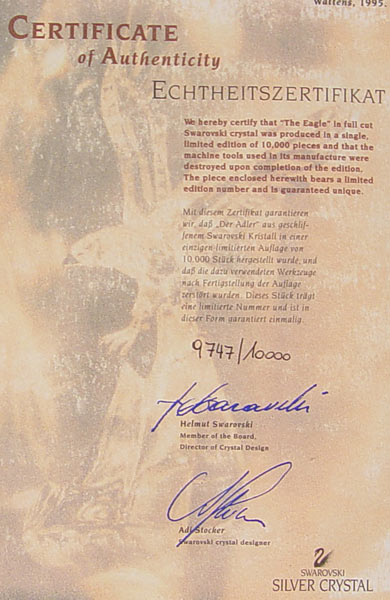 Wattens, 1995.
CERTIFICATE
of Authenticity
ECHTHEITSZERTIFIKAT
We hereby certify that "The Eagle" in full cut
Swarovski crystal was produced in a single,
limited edition of 10,000 pieces and that the
machine tools used in its manufacture were
destroyed upon completion of the edition.
The piece enclosed herewith bears a limited
edition number and is guaranteed unique.
Mit diesem Zertifikat garantieren
wir, daß „Der Adler" aus geschlif-
fenem Swarovski Kristall in einer
einzigen limitierten Auflage von
10.000 Stück hergestellt wurde, und
daß die dazu verwendeten Werkzeuge
nach Fertigstellung der Auflage
zerstört wurden. Dieses Stück trägt
eine limitierte Nummer und ist in
dieser Form garantiert einmalig.
9747/10000
Helmut Swarovski
Member of the Board,
Director of Crystal Design
Adi Stocker
Swarovski crystal designer
SWAROVSKI
SILVER CRYSTAL